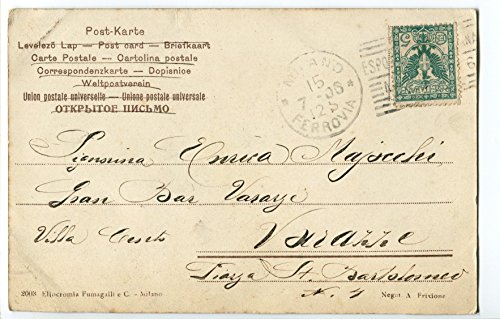 Post-Karte
Levelező Lap — Post card — Briefkaart
Carte Postale — Cartolina postale
Correspondenzkarte — Dopisnice
Weltpostverein
Union postale universelle — Unione postale universale
ОТКРЫТОЕ ПИСЬМО
MILANO
15
7-06
12 S
* FERROVIA *
ESPO
Signorina Enrica Majocchi
Gran Bar Varazze
Villa
Varazze
Piazza St. Bartolomeo
N. 4
2003 Eliocromia Fumagalli e C. - Milano
Negat A. Frixione